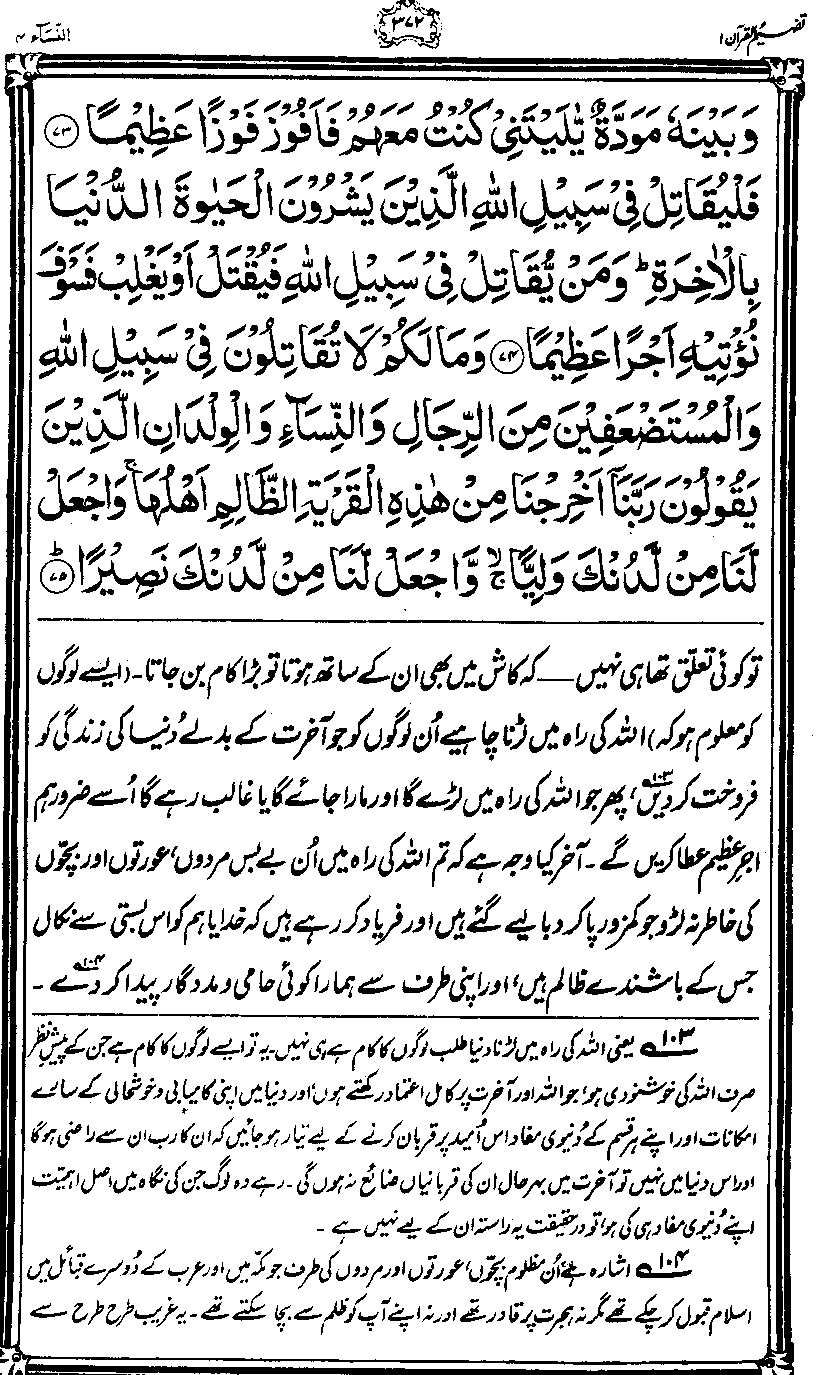 تفہیم القرآن ۱
۳۷۲
النّسآء ۴
وَبَيْنَهٗ مَوَدَّةٌ يّٰلَيْتَنِيْ كُنْتُ مَعَهُمْ فَاَفُوْزَ فَوْزًا عَظِيْمًا ﴿۷۳﴾
فَلْيُقَاتِلْ فِيْ سَبِيْلِ اللهِ الَّذِيْنَ يَشْرُوْنَ الْحَيٰوةَ الدُّنْيَا
بِالْاٰخِرَةِ ؕ وَمَنْ يُّقَاتِلْ فِيْ سَبِيْلِ اللهِ فَيُقْتَلْ اَوْ يَغْلِبْ فَسَوْفَ
نُؤْتِيْهِ اَجْرًا عَظِيْمًا ﴿۷۴﴾ وَمَا لَكُمْ لَا تُقَاتِلُوْنَ فِيْ سَبِيْلِ اللهِ
وَالْمُسْتَضْعَفِيْنَ مِنَ الرِّجَالِ وَالنِّسَآءِ وَالْوِلْدَانِ الَّذِيْنَ
يَقُوْلُوْنَ رَبَّنَآ اَخْرِجْنَا مِنْ هٰذِهِ الْقَرْيَةِ الظَّالِمِ اَهْلُهَا ۚ وَاجْعَلْ
لَّنَا مِنْ لَّدُنْكَ وَلِيًّا ۚۙ وَّاجْعَلْ لَّنَا مِنْ لَّدُنْكَ نَصِيْرًا ؕ ﴿۷۵﴾
تو کوئی تعلق تھا ہی نہیں —— کہ کاش میں بھی ان کے ساتھ ہوتا تو بڑا کام بن جاتا۔ (ایسے لوگوں
کو معلوم ہو کہ) اللہ کی راہ میں لڑنا چاہیے اُن لوگوں کو جو آخرت کے بدلے دُنیا کی زندگی کو
فروخت کر دیں۱۰۳، پھر جو اللہ کی راہ میں لڑے گا اور مارا جائے گا یا غالب رہے گا اُسے ضرور ہم
اجرِ عظیم عطا کریں گے۔ آخر کیا وجہ ہے کہ تم اللہ کی راہ میں اُن بے بس مردوں، عورتوں اور بچّوں
کی خاطر نہ لڑو جو کمزور پا کر دبا لیے گئے ہیں اور فریاد کر رہے ہیں کہ خدایا ہم کو اس بستی سے نکال
جس کے باشندے ظالم ہیں، اور اپنی طرف سے ہمارا کوئی حامی و مددگار پیدا کر دے۱۰۴۔
۱۰۳ یعنی اللہ کی راہ میں لڑنا دنیا طلب لوگوں کا کام ہے ہی نہیں۔ یہ تو ایسے لوگوں کا کام ہے جن کے پیشِ نظر
صرف اللہ کی خوشنودی ہو، جو اللہ اور آخرت پر کامل اعتماد رکھتے ہوں، اور دنیا میں اپنی کامیابی و خوشحالی کے سارے
امکانات اور اپنے ہر قسم کے دُنیوی مفاد اس اُمید پر قربان کرنے کے لیے تیار ہو جائیں کہ ان کا رب ان سے راضی ہوگا
اور اس دنیا میں نہیں تو آخرت میں بہرحال ان کی قربانیاں ضائع نہ ہوں گی۔ رہے وہ لوگ جن کی نگاہ میں اصل اہمیّت
اپنے دُنیوی مفاد ہی کی ہو، تو درحقیقت یہ راستہ ان کے لیے نہیں ہے۔
۱۰۴ اشارہ ہے اُن مظلوم بچّوں، عورتوں اور مردوں کی طرف جو مکّہ میں اور عرب کے دُوسرے قبائل میں
اسلام قبول کر چکے تھے مگر نہ ہجرت پر قادر تھے اور نہ اپنے آپ کو ظلم سے بچا سکتے تھے۔ یہ غریب طرح طرح سے